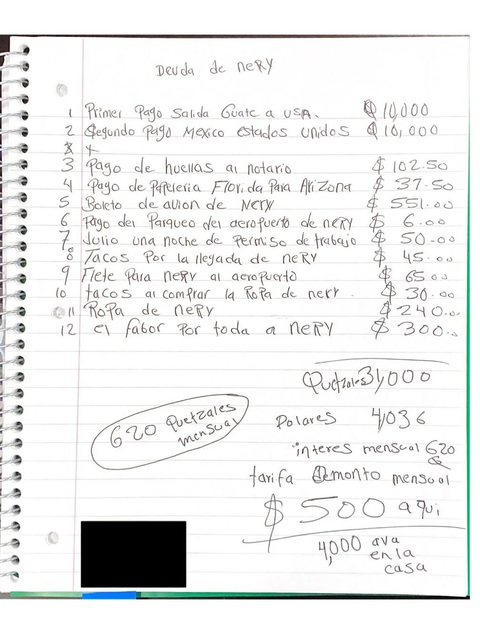 Deuda de neRY
1 Primer Pago Salida Guate a USA. Q 10,000
2 Segundo Pago Mexico estados unidos Q 10,000
3 Pago de huellas al notario $ 102.50
4 Pago de Papeleria Florida Para Arizona $ 37.50
5 Boleto de avion de NERY $ 551.00
6 Pago del Parqueo del aeropuerto de neRY $ 6.00
7 Julio una noche de Permiso de trabajo $ 50.00
8 Tacos Por la llegada de neRY $ 45.00
9 Flete Para neRY al aeropuerto $ 65.00
10 tacos al comprar la RoPa de nery. $ 30.00
11 RoPa de neRY $ 240.00
12 el fabor Por toda a neRY $ 300.00
31,000
620 Quetzales
mensual
Dolares 4,036
interes mensual 620
tarifa monto mensual
$ 500 aqui
4,000 ava
en la
casa